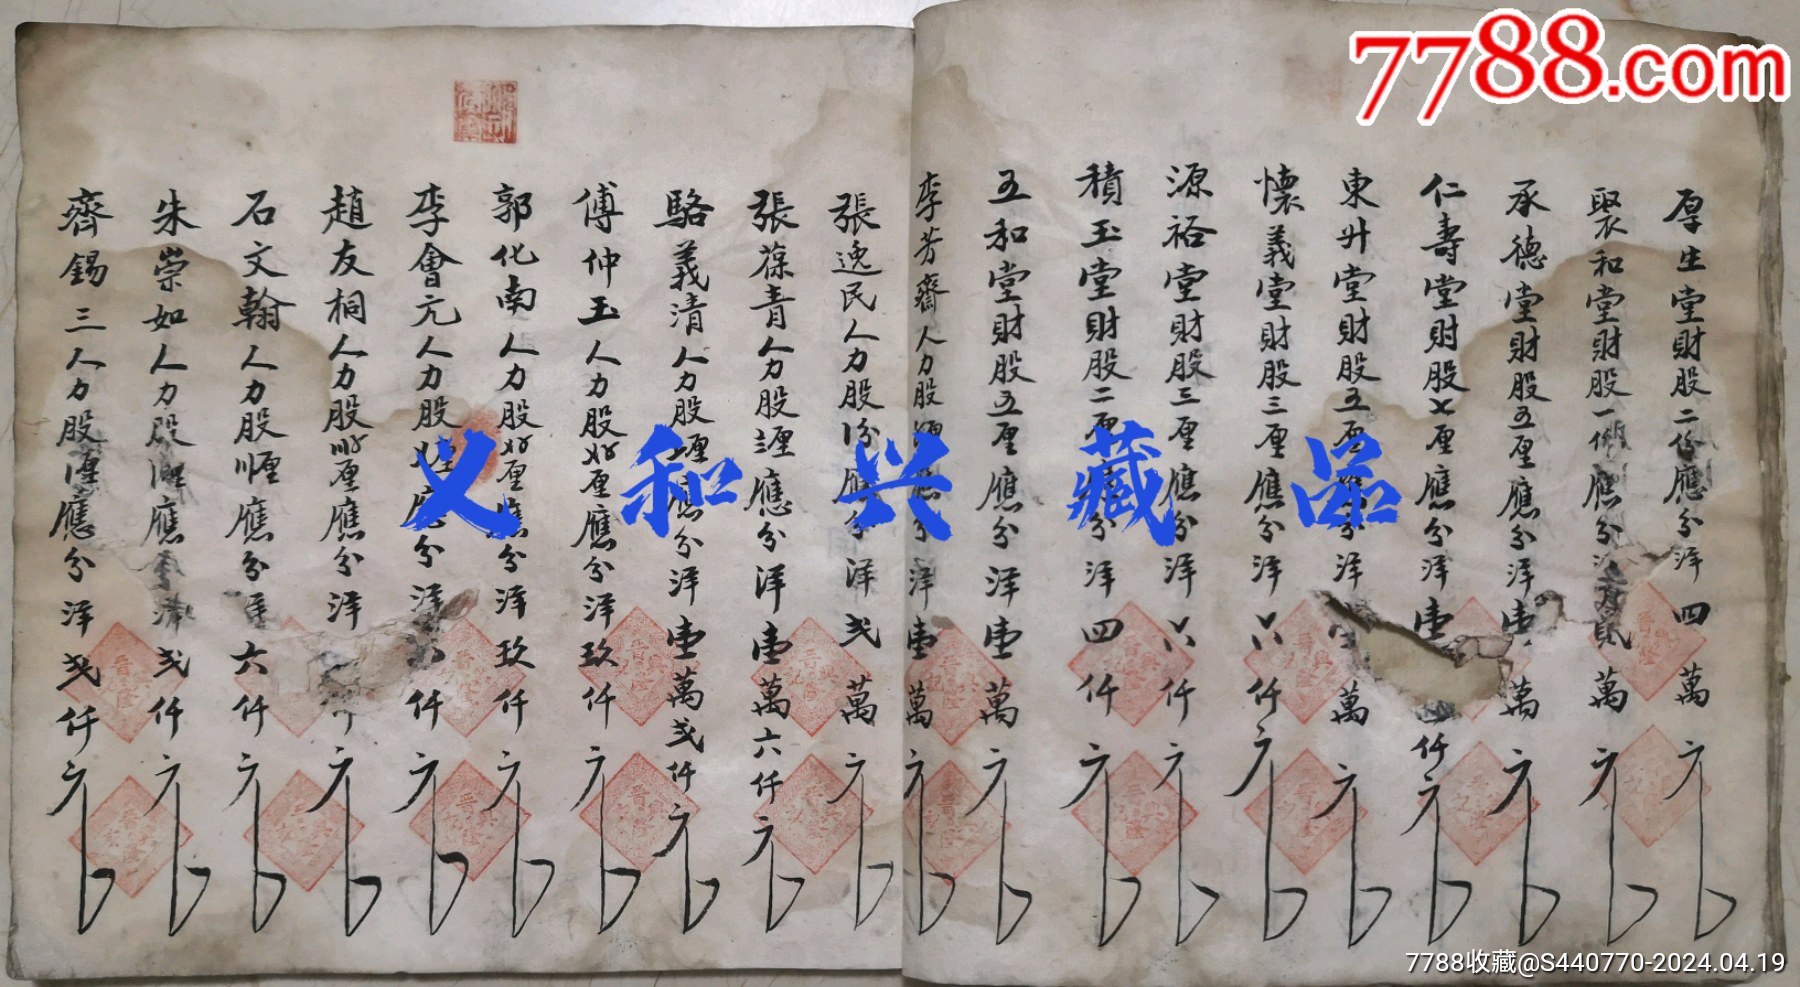 7788.com
厚生堂財股二份應分洋四萬元
聚和堂財股一份應分洋貳萬元
承德堂財股五厘應分洋壹萬元
仁壽堂財股〤厘應分洋壹仟元
東升堂財股五厘應分洋壹萬元
懷義堂財股三厘應分洋六仟元
源裕堂財股三厘應分洋六仟元
積玉堂財股二厘應分洋四仟元
五和堂財股五厘應分洋壹萬元
李芳齋人力股應分洋壹萬元
張逸民人力股應分洋弍萬元
張葆青人力股應分洋壹萬六仟元
駱義清人力股應分洋壹萬弍仟元
傅仲玉人力股厘應分洋玖仟元
郭化南人力股厘應分洋玖仟元
李會元人力股應分洋仟元
趙友桐人力股厘應分洋仟元
石文翰人力股應分洋六仟元
朱崇如人力股應分洋弍仟元
齊錫三人力股應分洋弍仟元
义和兴藏品
7788收藏@S440770-2024.04.19